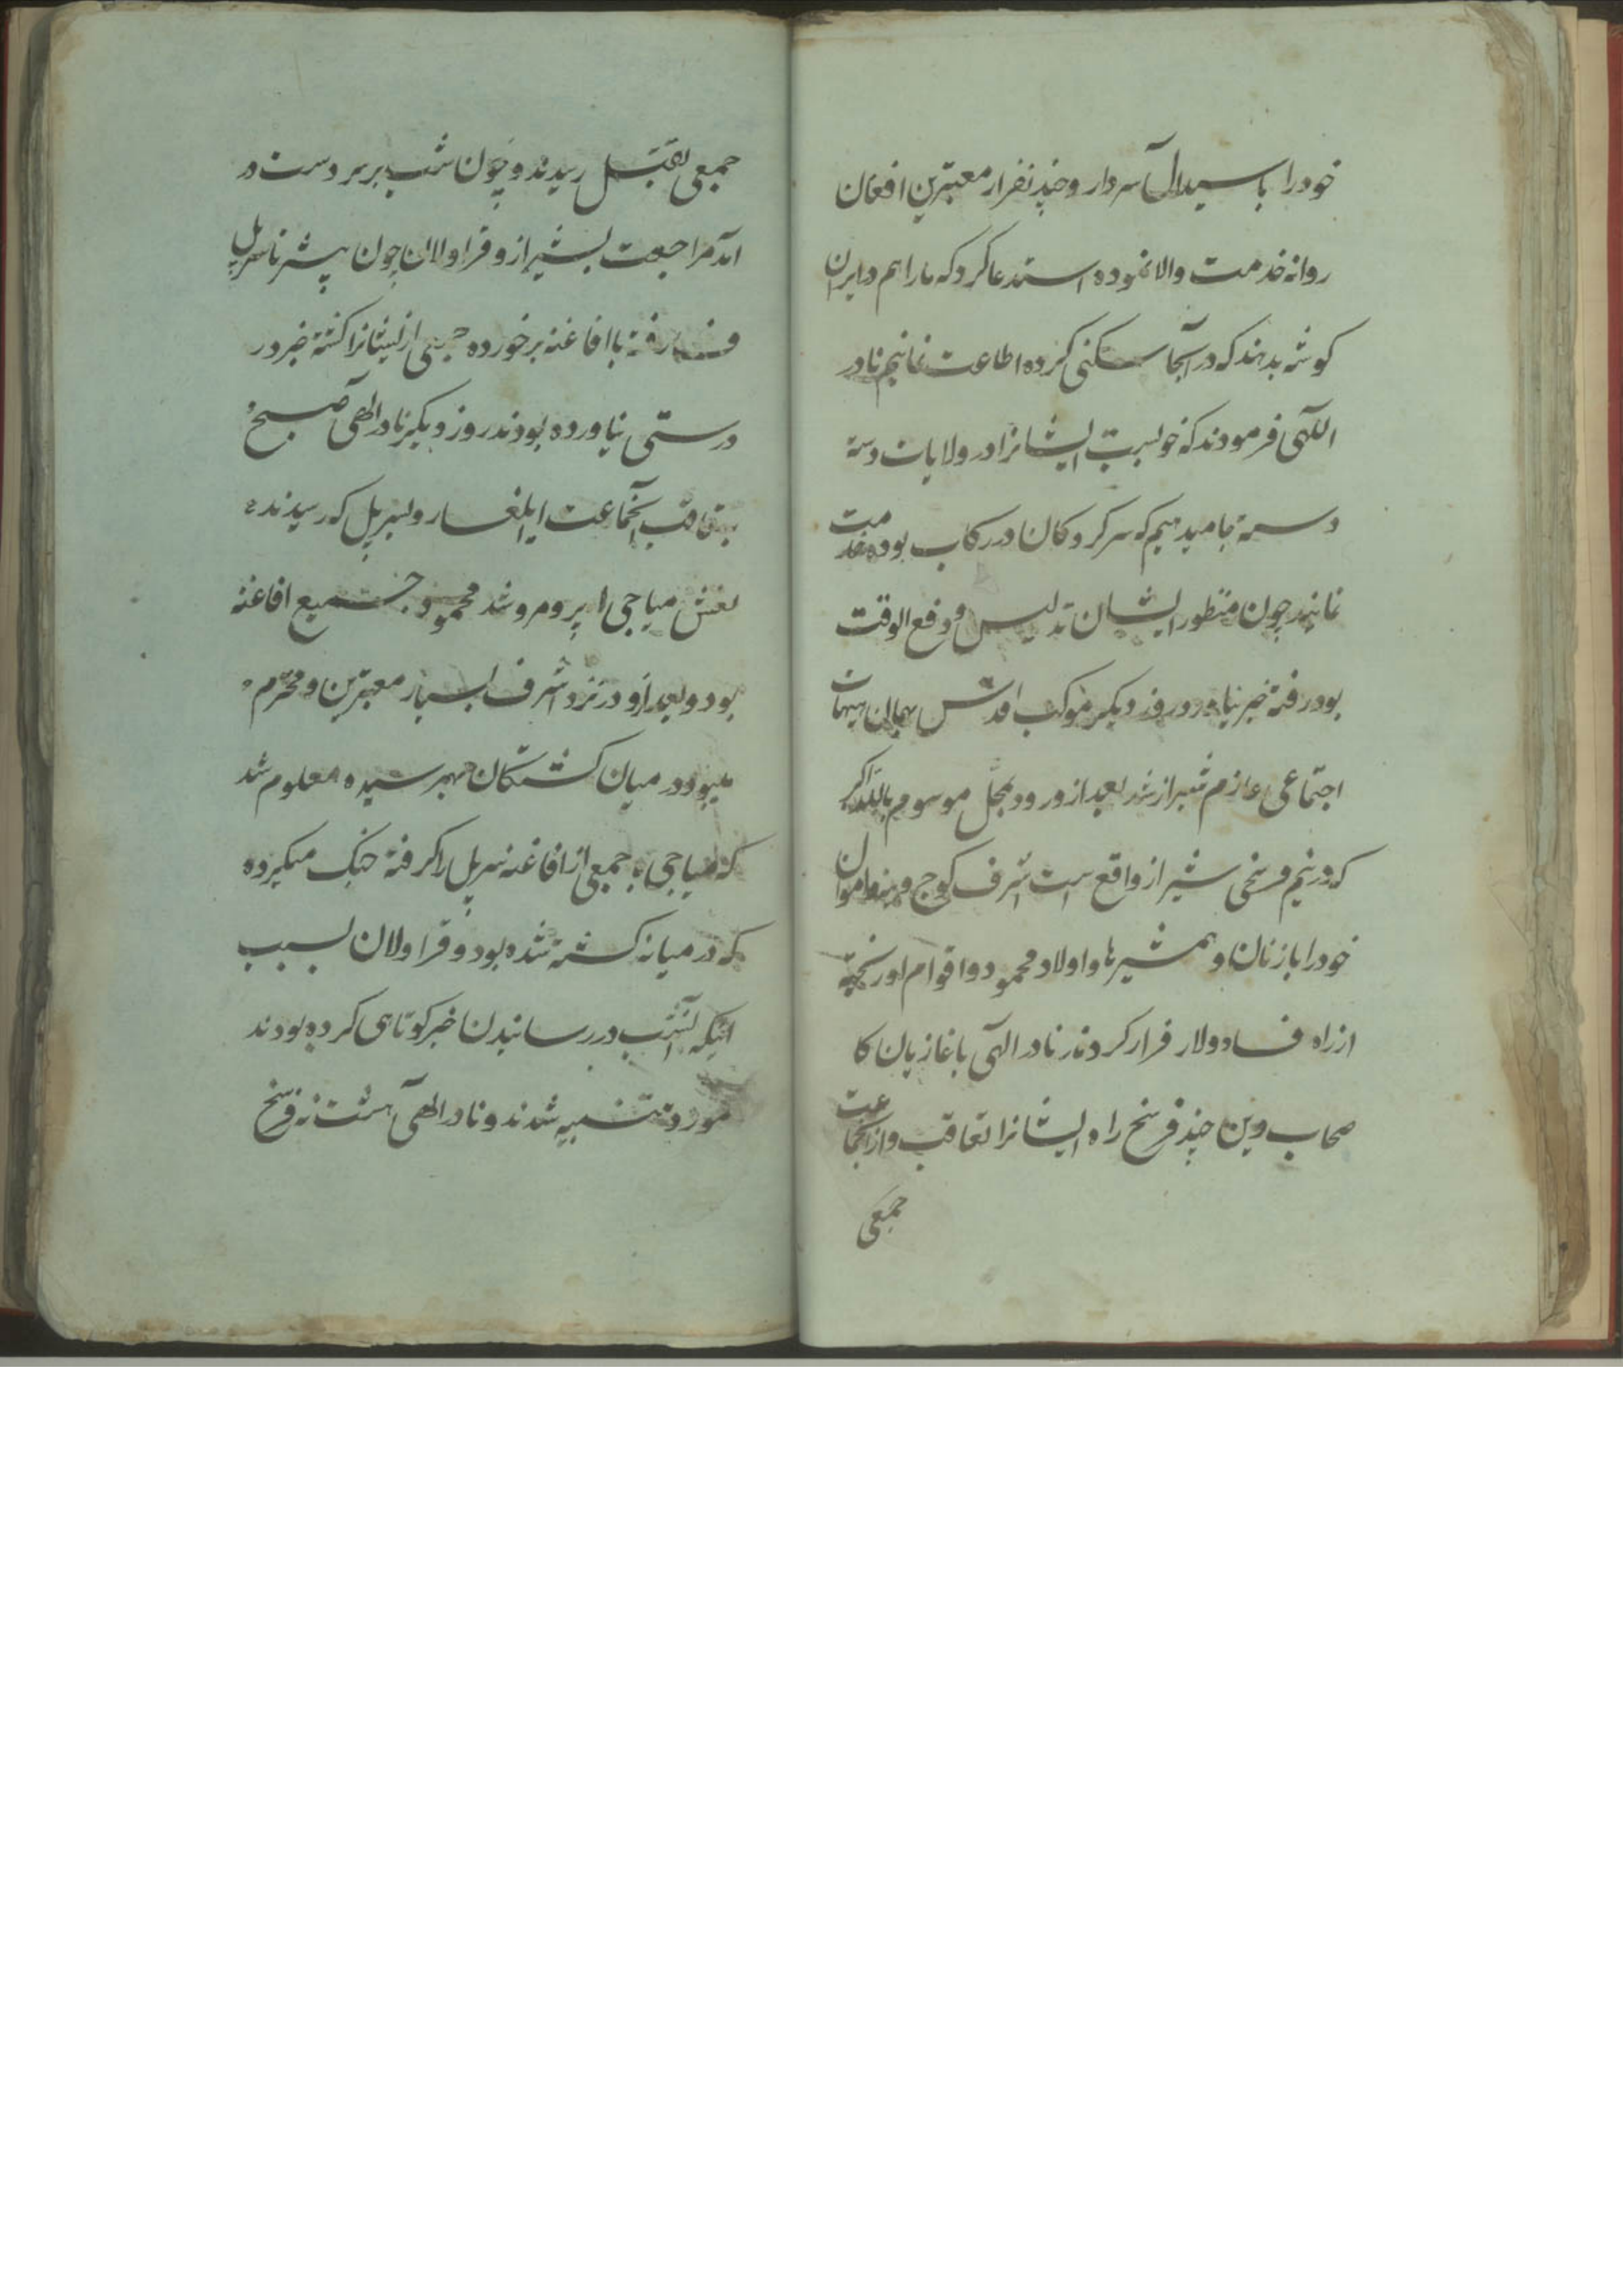 خودرا با سیدال سردار و چند نفر از معتبرین افغان
روانه خدمت والا نموده استدعا کرد که ما را هم در ایران
کوشه بدهند که در آنجا سکنی کرده اطاعت نمائیم نادر
اللهی فرمودند که خوبست ایشانرا در ولایات دسته
دسته جا میدهیم که سرکردکان در رکاب بوده خدمت
نمایند چون منظور ایشان تدلیس و دفع الوقت
بود رفته خبر نیاورد روز دیکر موکب اقدس بهمان هیهات
اجتماعی عازم شیراز شد بعد از ورود بمحل موسوم بالله اکبر
که در نیم فرسخی شیراز واقع است اشرف کوچ و بنه و اموال
خودرا با زنان و همشیرها و اولاد محمود و اقوام او
از راه فسا و لار فرار کردند نادر الهی با غازیان کا
صحاب وین چند فرسخ راه ایشانرا تعاقب و از آنجماعت
جمعی
جمعی بقتل رسیدند و چون شب بر سر دست در
آمد مراجعت بشیراز و قراولان چون پیشتر تا سر پل
فسا رفته با افاغنه برخورده جمعی از ایشانرا کشته خبر در
درستی نیاورده بودند روز دیکر نادر الهی صبح
بتعاقب آنجماعت ایلغار و بسر پل که رسیدند
نعش میاجی ا پیر و مرشد محمود و جمیع افاغنه
بود و بعد از و در نزد اشرف بسیار معتبرین و محترم
میبود در میان کشتکان بهم رسیده معلوم شد
که میاجی با جمعی از افاغنه سر پل را کرفته جنک میکرده
که در میانه کشته شده بود و قراولان بسبب
اینکه آنشب در رسانیدن خبر کوتاهی کرده بودند
مورد تنبیه شدند و نادر الهی هشت نه فرسخ